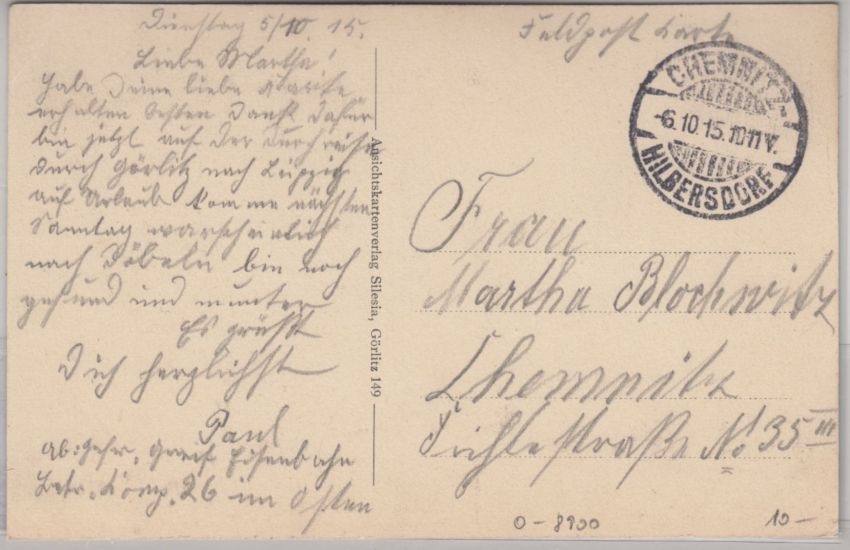 Dienstag 5/10. 15.
Liebe Martha!
Habe Deine liebe Karte
erhalten besten Dank dafür
bin jetzt auf der Durchreise
durch Görlitz nach Leipzig
auf Urlaub komme nächsten
Sonntag warscheinlich
nach Döbeln bin noch
gesund und munter
Es grüßt
Dich herzlichst
Paul
Abs: Gefr. Greif Eisenbahn
Betr. Komp. 26 im Osten
Ansichtskartenverlag Silesia, Görlitz 149
Feldpost Karte
CHEMNITZ-
-6.10.15.10-11V.
HILBERSDORF
Frau
Martha Blochwitz
Chemnitz
Fichtestraße No 35 III
0-8900
10-